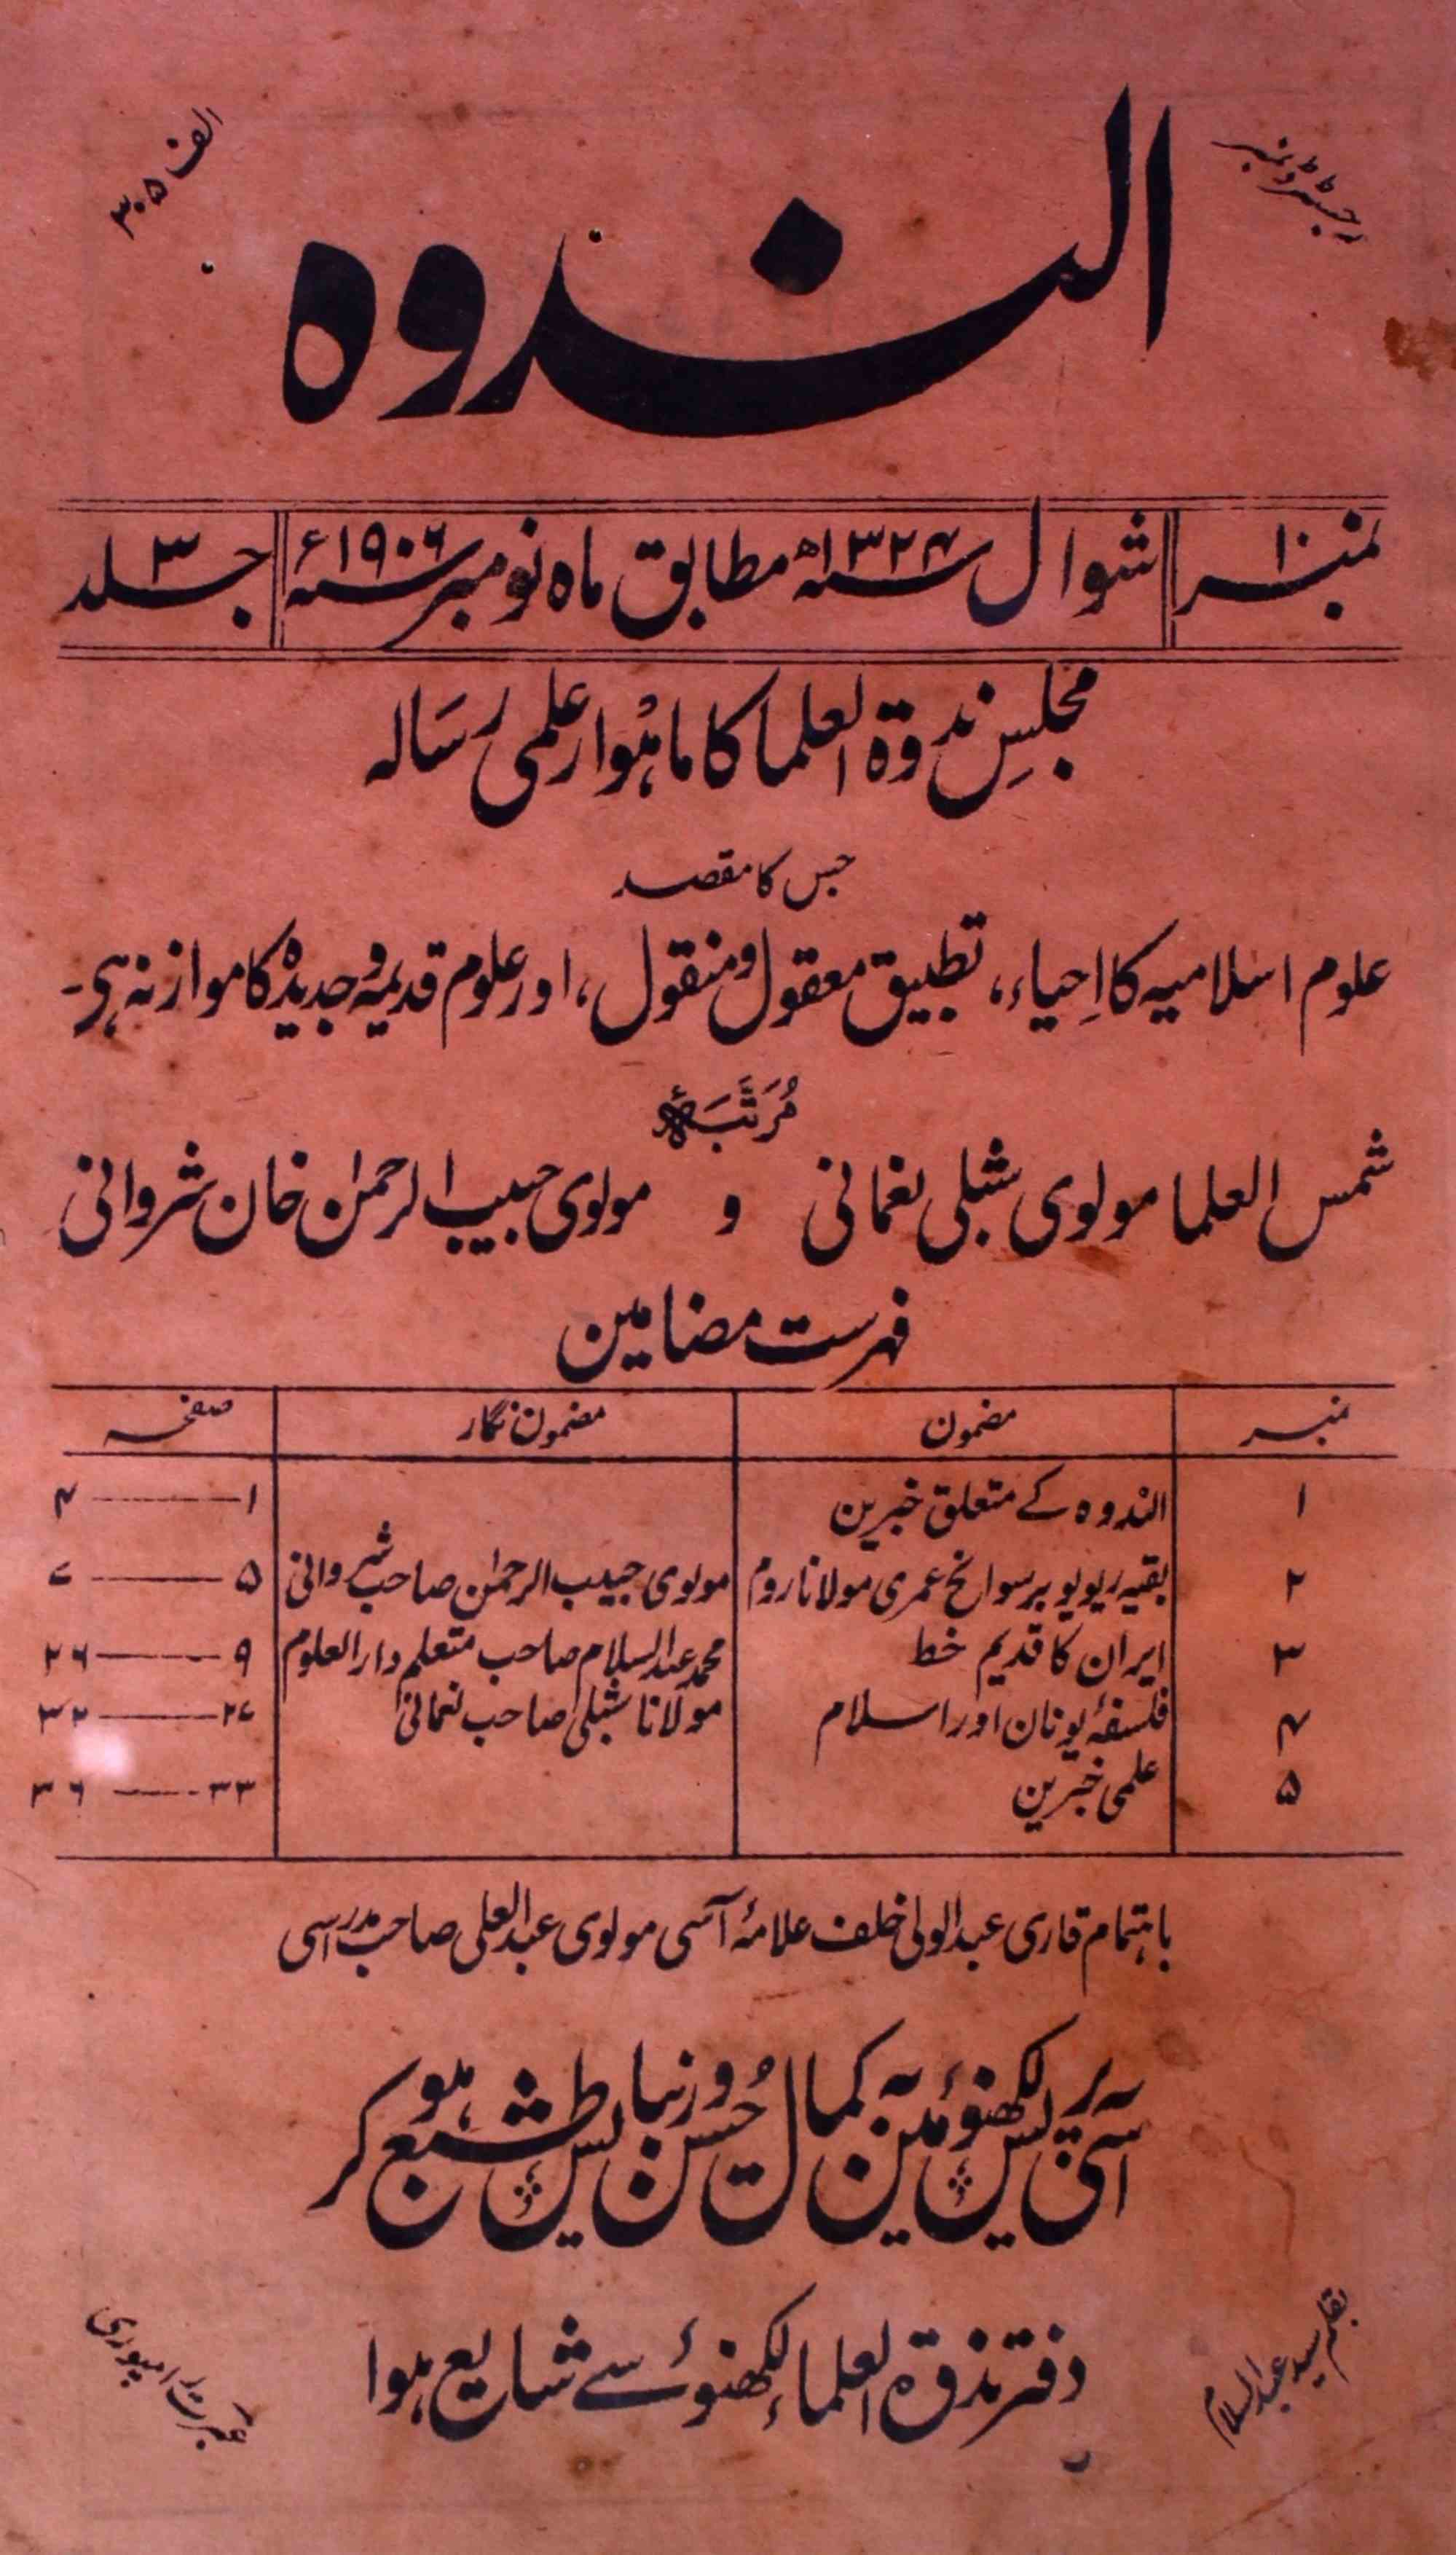 رجسٹرڈ نمبر
الف ۳۰۵
الندوہ
نمبر ۱۰ شوال سنہ ۱۳۲۴ھ مطابق ماہ نومبر سنہ ۱۹۰۶ء جلد ۳
مجلسِ ندوۃ العلما کا ماہوار علمی رسالہ
جس کا مقصد
علوم اسلامیہ کا اِحیاء، تطبیق معقول و منقول، اور علوم قدیمہ و جدیدہ کا موازنہ ہی۔
مُرَتَّبَہٗ
شمس العلما مولوی شبلی نعمانی و مولوی حبیب الرحمٰن خان شروانی
فہرست مضامین
نمبر مضمون مضمون نگار صفحہ
۱ الندوہ کے متعلق خبرین ۱ — ۴
۲ بقیہ ریویو بر سوانح عمری مولانا روم مولوی حبیب الرحمٰن صاحب شروانی ۵ — ۷
۳ ایران کا قدیم خط محمد عبد السلام صاحب متعلم دار العلوم ۹ — ۲۶
۴ فلسفۂ یونان اور اسلام مولانا شبلی صاحب نعمانی ۲۷ — ۳۲
۵ علمی خبرین ۳۳ — ۳۶
باہتمام قاری عبد الولی خلف علامۂ آسی مولوی عبد العلی صاحب مدراسی
آسی پریس لکھنؤ مین بہ کمال حُسن و زیبایش طبع ہو کر
دفتر ندوۃ العلماء لکھنؤ سے شایع ہوا
بقلم سید عبد السلام
عبرت رامپوری